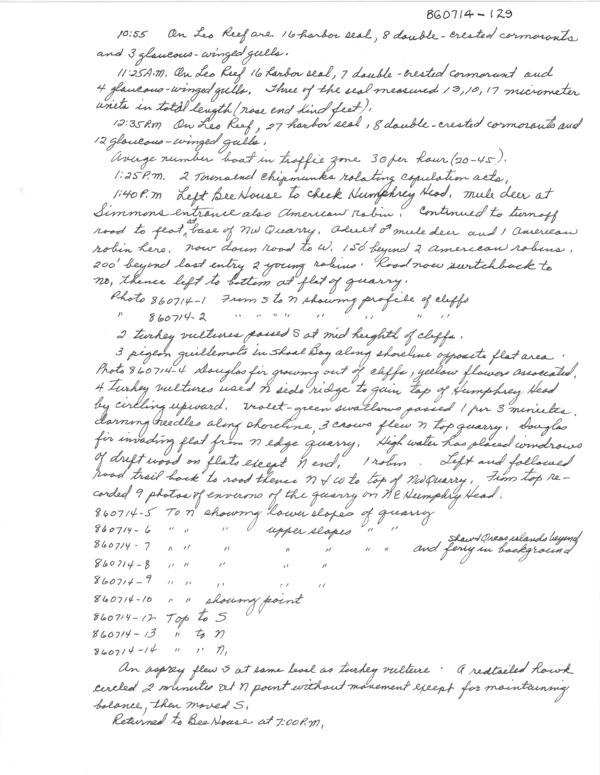 860714-129
10:55 On Leo Reef are 16 harbor seal, 8 double-crested cormorants
and 3 glaucous-winged gulls.
11:25 A.M. On Leo Reef 16 harbor seal, 7 double-crested cormorant and
4 glaucous-winged gulls. Three of the seal measured 13, 10, 17 micrometer
units in total length (nose end hind feet).
12:35 P.M. On Leo Reef, 27 harbor seal, 8 double-crested cormorants and
12 glaucous-winged gulls.
Averge number boat in traffic zone 30 per hour (20-45).
1:25 P.M. 2 Townsend Chipmunks rotating copulation acts,
1:40 P.M Left Bee House to check Humphrey Head, mule deer at
Simmons entrance also American robin. Continued to turnoff
road to flat at base of NW Quarry. Adult ♂ mule deer and 1 American
robin here. Now down road to W. 150' beyond 2 American robins.
200' beyond last entry 2 young robins. Road now switchback to
no, thence left to bottom at flat of quarry.
Photo 860714-1 From S to N showing profile of cliffs
" 860714-2 " " " " " " "
2 turkey vultures passed S at mid heighth of cliffs.
3 pigeon guillemots in Shoal Bay along shoreline opposite flat area.
Photo 860714-4 Douglas fir growing out of cliffs, yellow flower associated.
4 Turkey vultures used N side ridge to gain top of Humphrey Head
by circling upward. Violet-green swallows passed 1 per 3 minutes.
darning needles along shoreline, 3 crows flew N top quarry. Douglas
fir invading flat from N edge quarry. High water has placed windrows
of drift wood on flats except N end, 1 robin. Left and followed
road trail back to road thence N & W to top of NW Quarry. From top re-
corded 9 photos of environs of the quarry on NE Humphry Head.
860714-5 To N showing lower slopes of quarry
860714-6 " " " upper slopes " "
860714-7 " " " " " " " and ferry in background
Shaw & Orcas islands beyond
860714-8 " " " " "
860714-9 " " " "
860714-10 " " showing point
860714-12 Top to S
860714-13 " to N
860714-14 " " N,
An osprey flew S at same level as turkey vulture. A redtailed hawk
circled 2 minutes at N point without movement except for maintaining
balance, then moved S.
Returned to Bee House at 7:00 P.M.